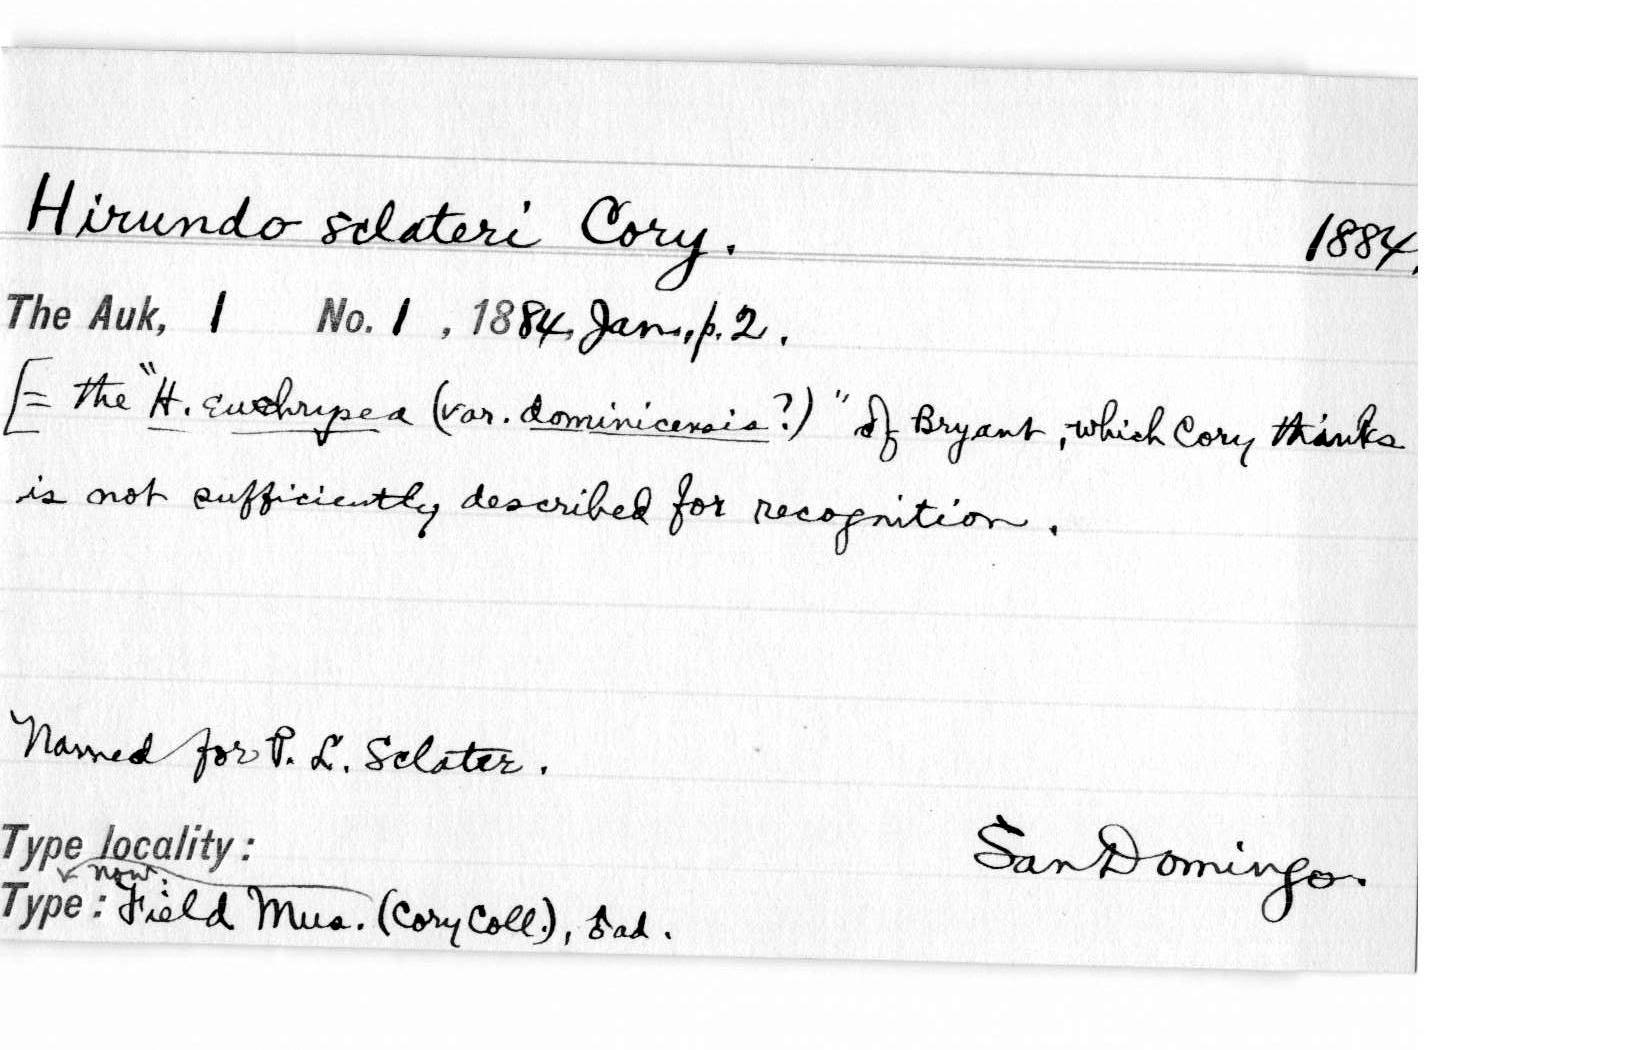 Hirundo sclateri Cory. 1884.
The Auk, 1 No. 1, 1884, Jan., p. 2.
[= the "H. euchrysea (var. dominicensis?)" of Bryant, which Cory thinks
is not sufficiently described for recognition.
Named for P. L. Sclater.
Type locality: San Domingo.
now:
Type: Field Mus. (Cory Coll.), ad.